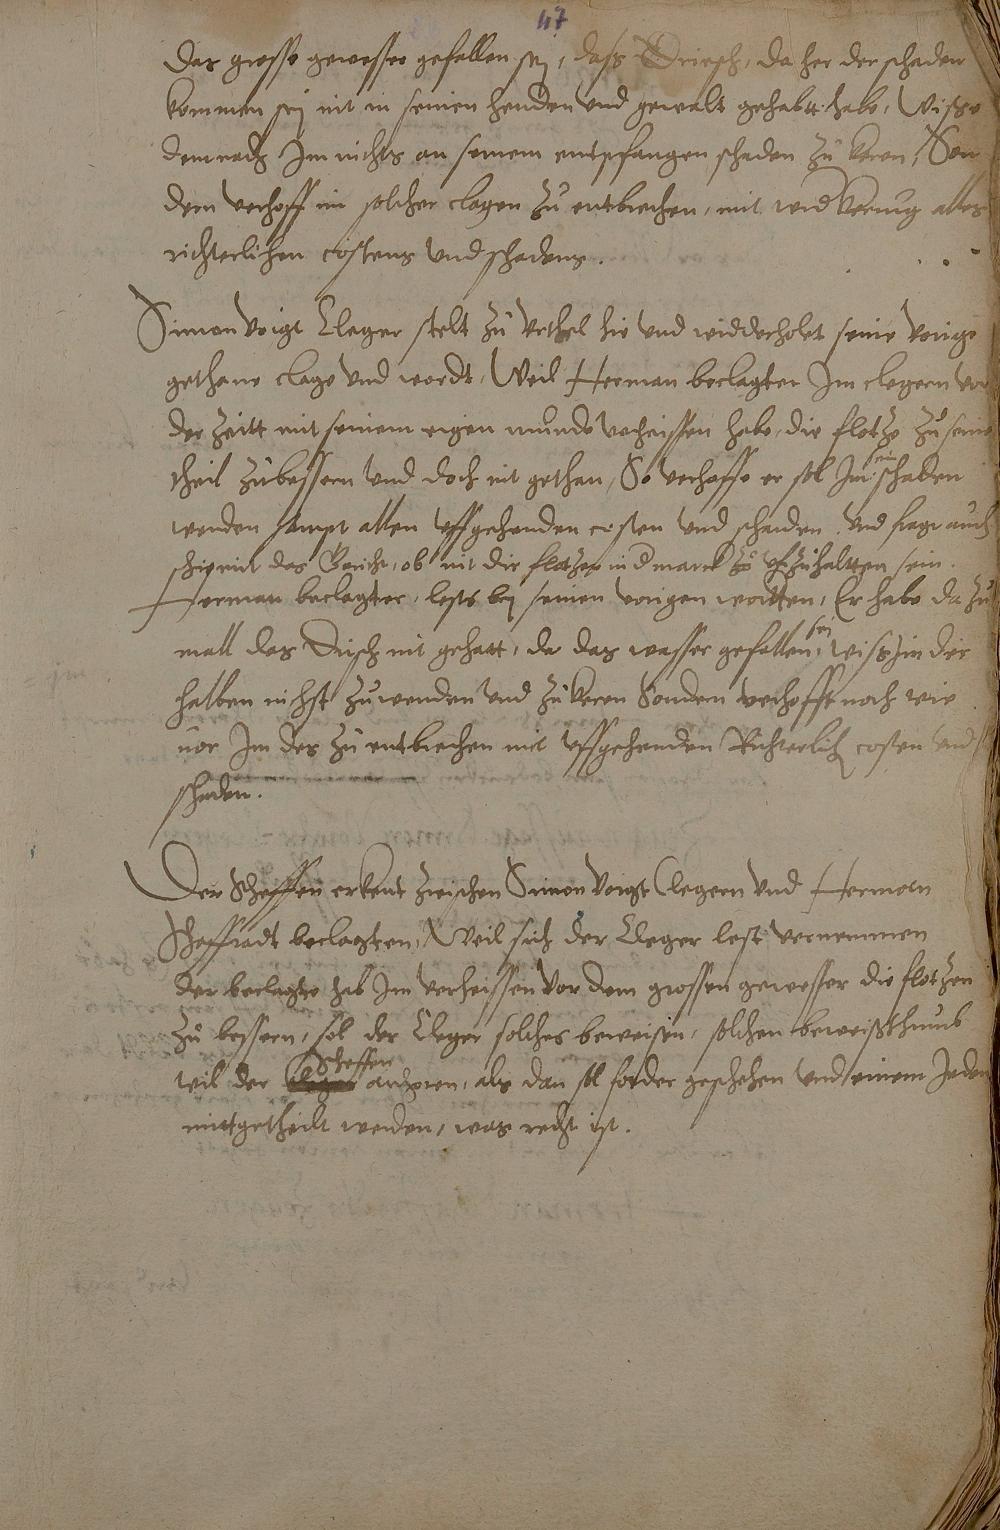 47
das grosse gewesser gefallen sej, dass Driesch, da her der schaden
kommen sej nit in seinen henden und gewalt gehabtt habe, Wisse
demnach Im nichts an seinem entpfangen schaden zu keren, Son
dern verhoff im solcher clagen zu entbrechen, mit widkerung alles
richterlichen costens und schadens.
Simon Voigt Cleger stelt zu Urthel hie und widderholet seine vorige
gethane clage und wordt, Weil Herman beclagter Im clegern vor
der Zeitt mit seinem eigen munde verheissen habe, die flotze zu seine
theil zubessern und doch nit gethan, So verhoffe er sol Im sein schaden
wenden sampt allen uffgehenden costen und schaden. Und frage auch
das Gericht, ob nit die flotzen in d marck zu zuhaltten sein.
Herman beclagter, lests bej seinen vorigen wortten, Er habe da zu
mall das Driesch nit gehatt, da das wasser gefallen sei, wiss im der
halben nichst zuwenden und zu keren Sondern verhofft noch wie
vor Im des zu entbrechen mit uffgehenden Richterlich costen und
schaden.
Der Scheffen erkent zwischen Simon Voigt Clegern und Herman
Scheffradt beclagten, Weil sich der Cleger lest vernemmen
der beclagte hab Im verheissen vor dem grossen gewesser die flotzen
zu bessern, sol der Cleger solches beweisen, solchen beweissthumb
wil der Scheffen anhoren, als dan sol forder geschehen und einem Jeden
mittgetheilt werden, was recht ist.